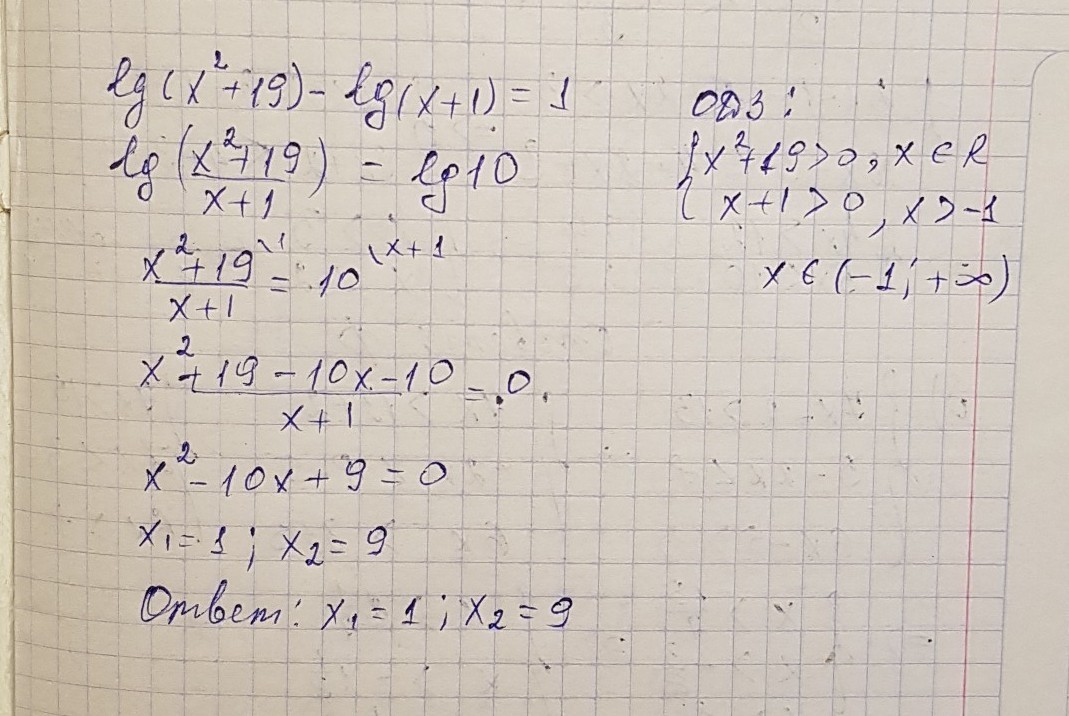 lg(x²+19) - lg(x+1) = 1
lg((x²+19)/(x+1)) = lg10
(x²+19)/(x+1) \1 = 10 \x+1
(x²+19-10x-10)/(x+1) = 0
x²-10x+9=0
x₁=1; x₂=9
Ответ: x₁=1; x₂=9
ОДЗ:
{x²+19>0, x∈R
{x+1>0, x>-1
x∈(-1; +∞)